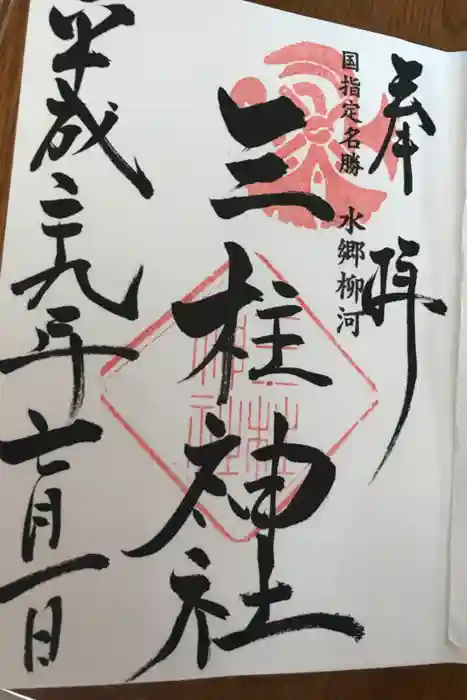 奉拝
国指定名勝 水郷柳河
三柱神社
三柱神社
平成二十九年七月一日